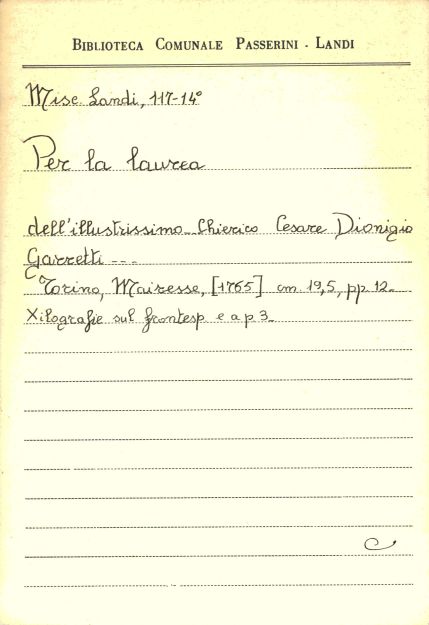 BIBLIOTECA COMUNALE PASSERINI - LANDI
Misc. Landi, 117-14°
Per la laurea
dell'illustrissimo Chierico Cesare Dionigio
Garretti ---
Torino, Mairesse, [1765] cm. 19,5, pp. 12.
Xilografie sul frontesp. e a p. 3.